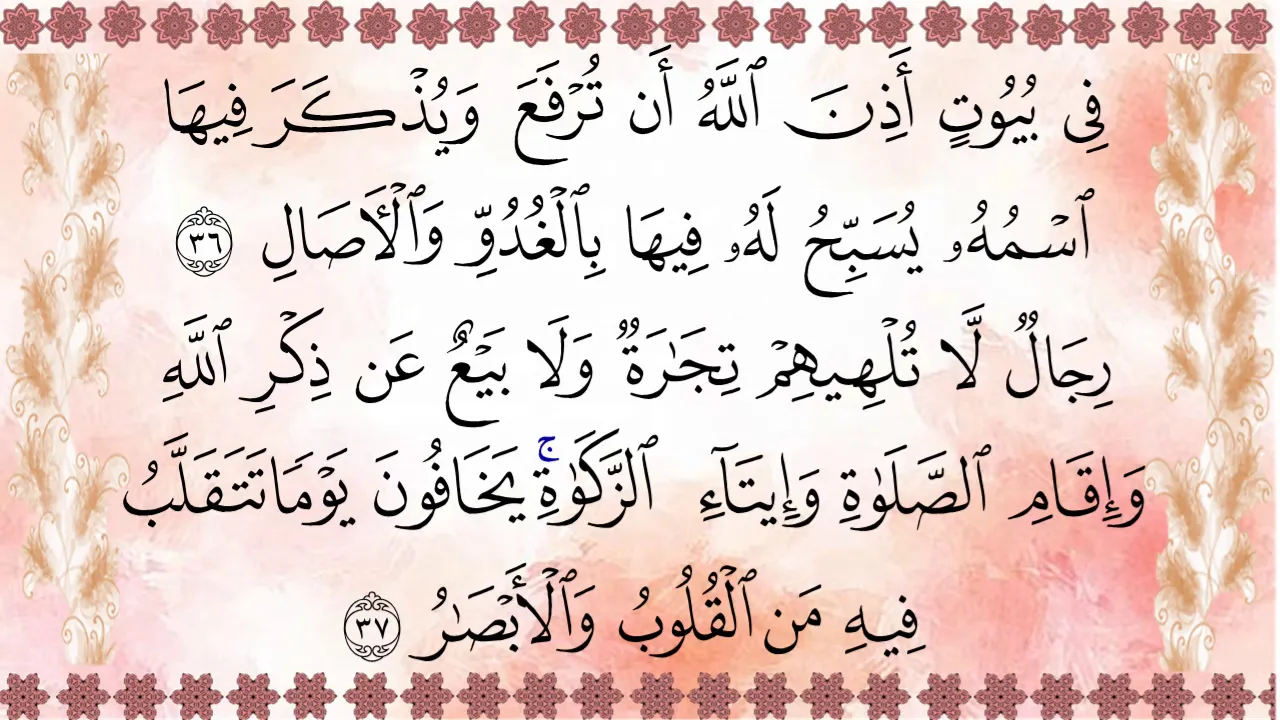 فِى بُيُوتٍ أَذِنَ ٱللَّهُ أَن تُرْفَعَ وَيُذْكَرَ فِيهَا
ٱسْمُهُۥ يُسَبِّحُ لَهُۥ فِيهَا بِٱلْغُدُوِّ وَٱلْأَصَالِ ٣٦
رِجَالٌ لَّا تُلْهِيهِمْ تِجَـٰرَةٌ وَلَا بَيْعٌ عَن ذِكْرِ ٱللَّهِ
وَإِقَامِ ٱلصَّلَوٰةِ وَإِيتَآءِ ٱلزَّكَوٰةِ ۚ يَخَافُونَ يَوْمًا تَتَقَلَّبُ
فِيهِ مَن ٱلْقُلُوبُ وَٱلْأَبْصَـٰرُ ٣٧